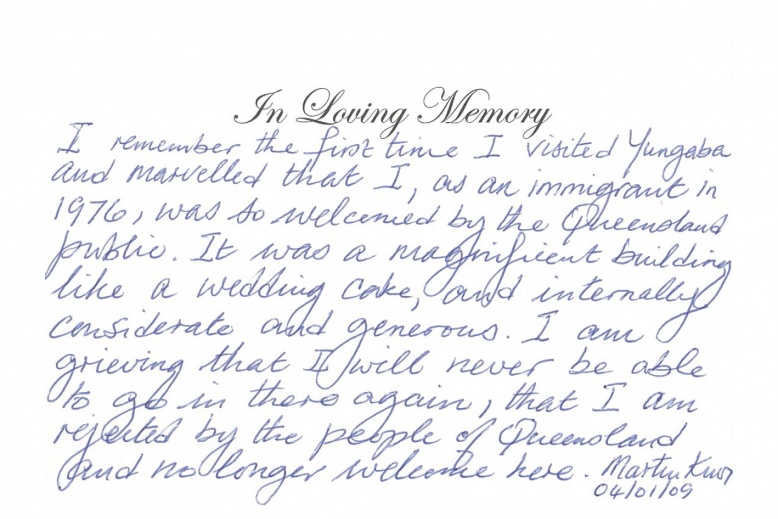 In Loving Memory
I remember the first time I visited Yungaba
and marvelled that I, as an immigrant in
1976, was so welcomed by the Queensland
public. It was a magnificent building
like a wedding cake, and internally
considerate and generous. I am
grieving that I will never be able
to go in there again, that I am
rejected by the people of Queensland
and no longer welcome here. Martin
04/01/09